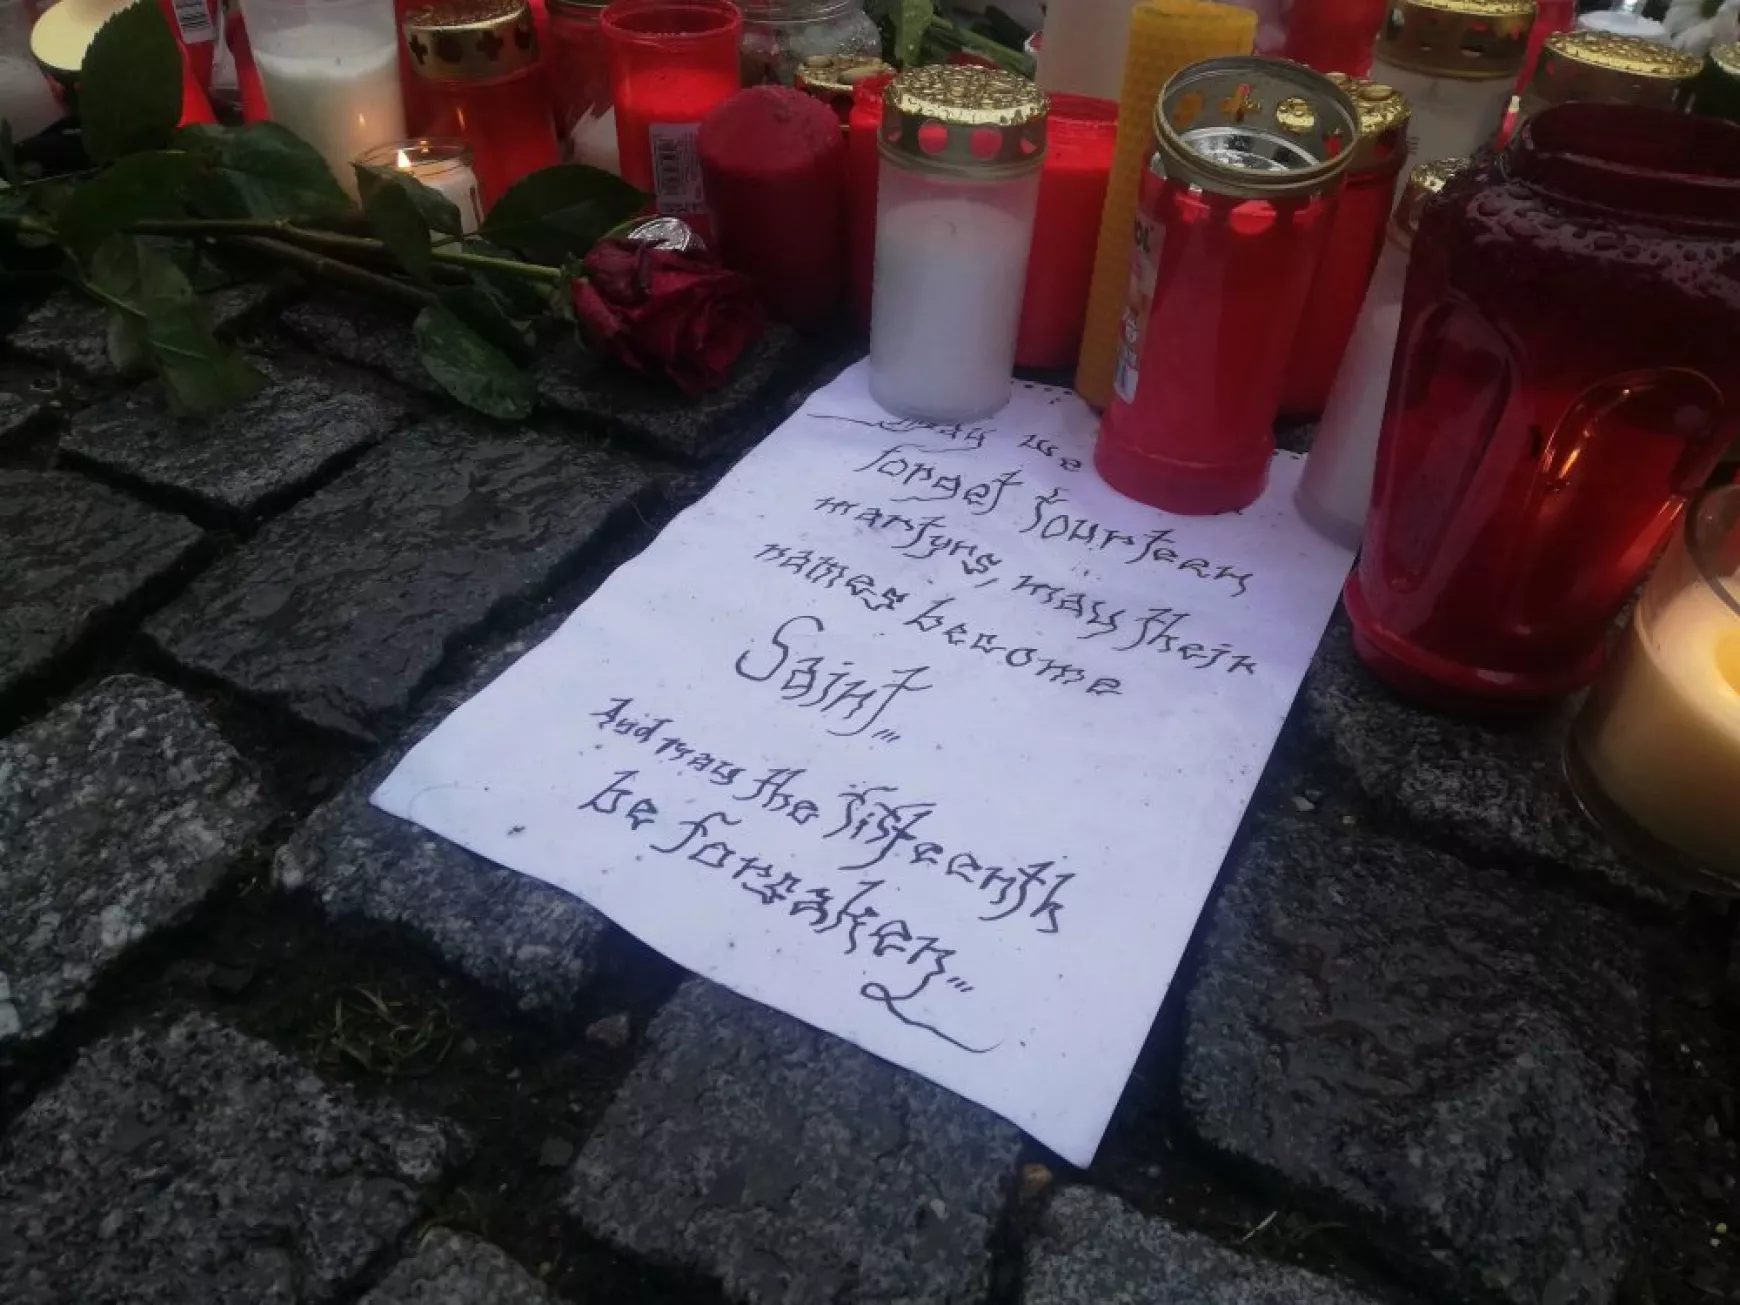 May we
forget fourteen
martyrs, may their
names become
Saint,,,
And may the fifteenth
be forsaken,,,